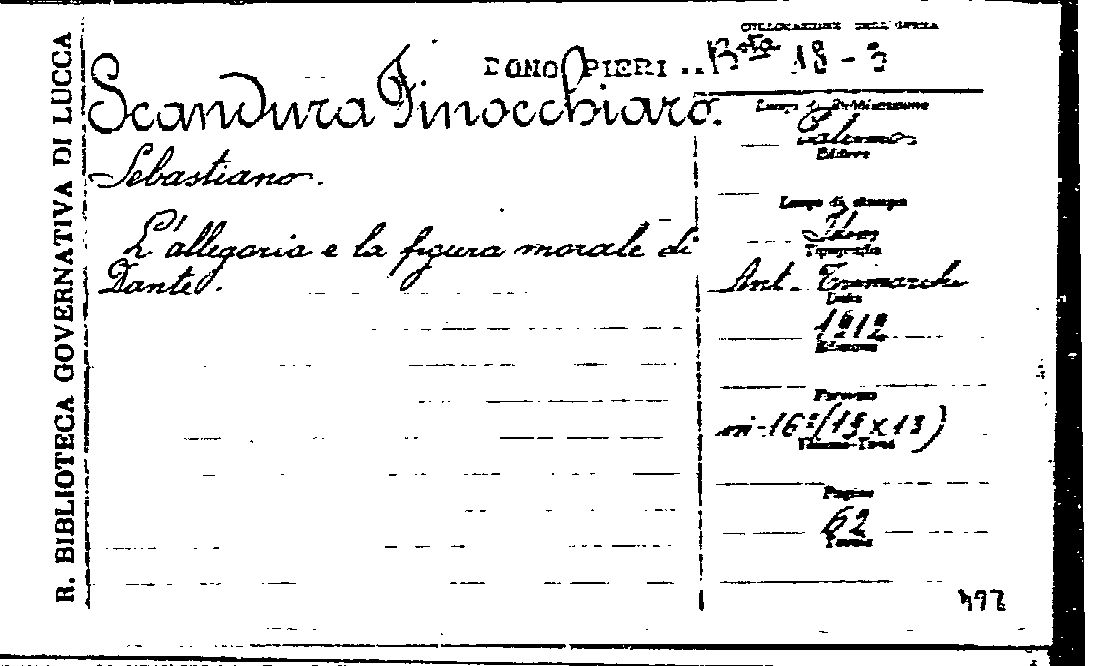 R. BIBLIOTECA GOVERNATIVA DI LUCCA
COLLOCAZIONE DELL'OPERA
DONO PIERI .. Bta 18 - 3
Scandura Finocchiaro
Sebastiano.
L'allegoria e la figura morale di
Dante.
Luogo di Pubblicazione
Palermo
Editore
Luogo di stampa
Idem
Tipografia
Ant. Trimarchi
Data
1912
Edizione
Formato
in-16º (19 x 13)
Volume-Tomo
Pagine
62
Tavole